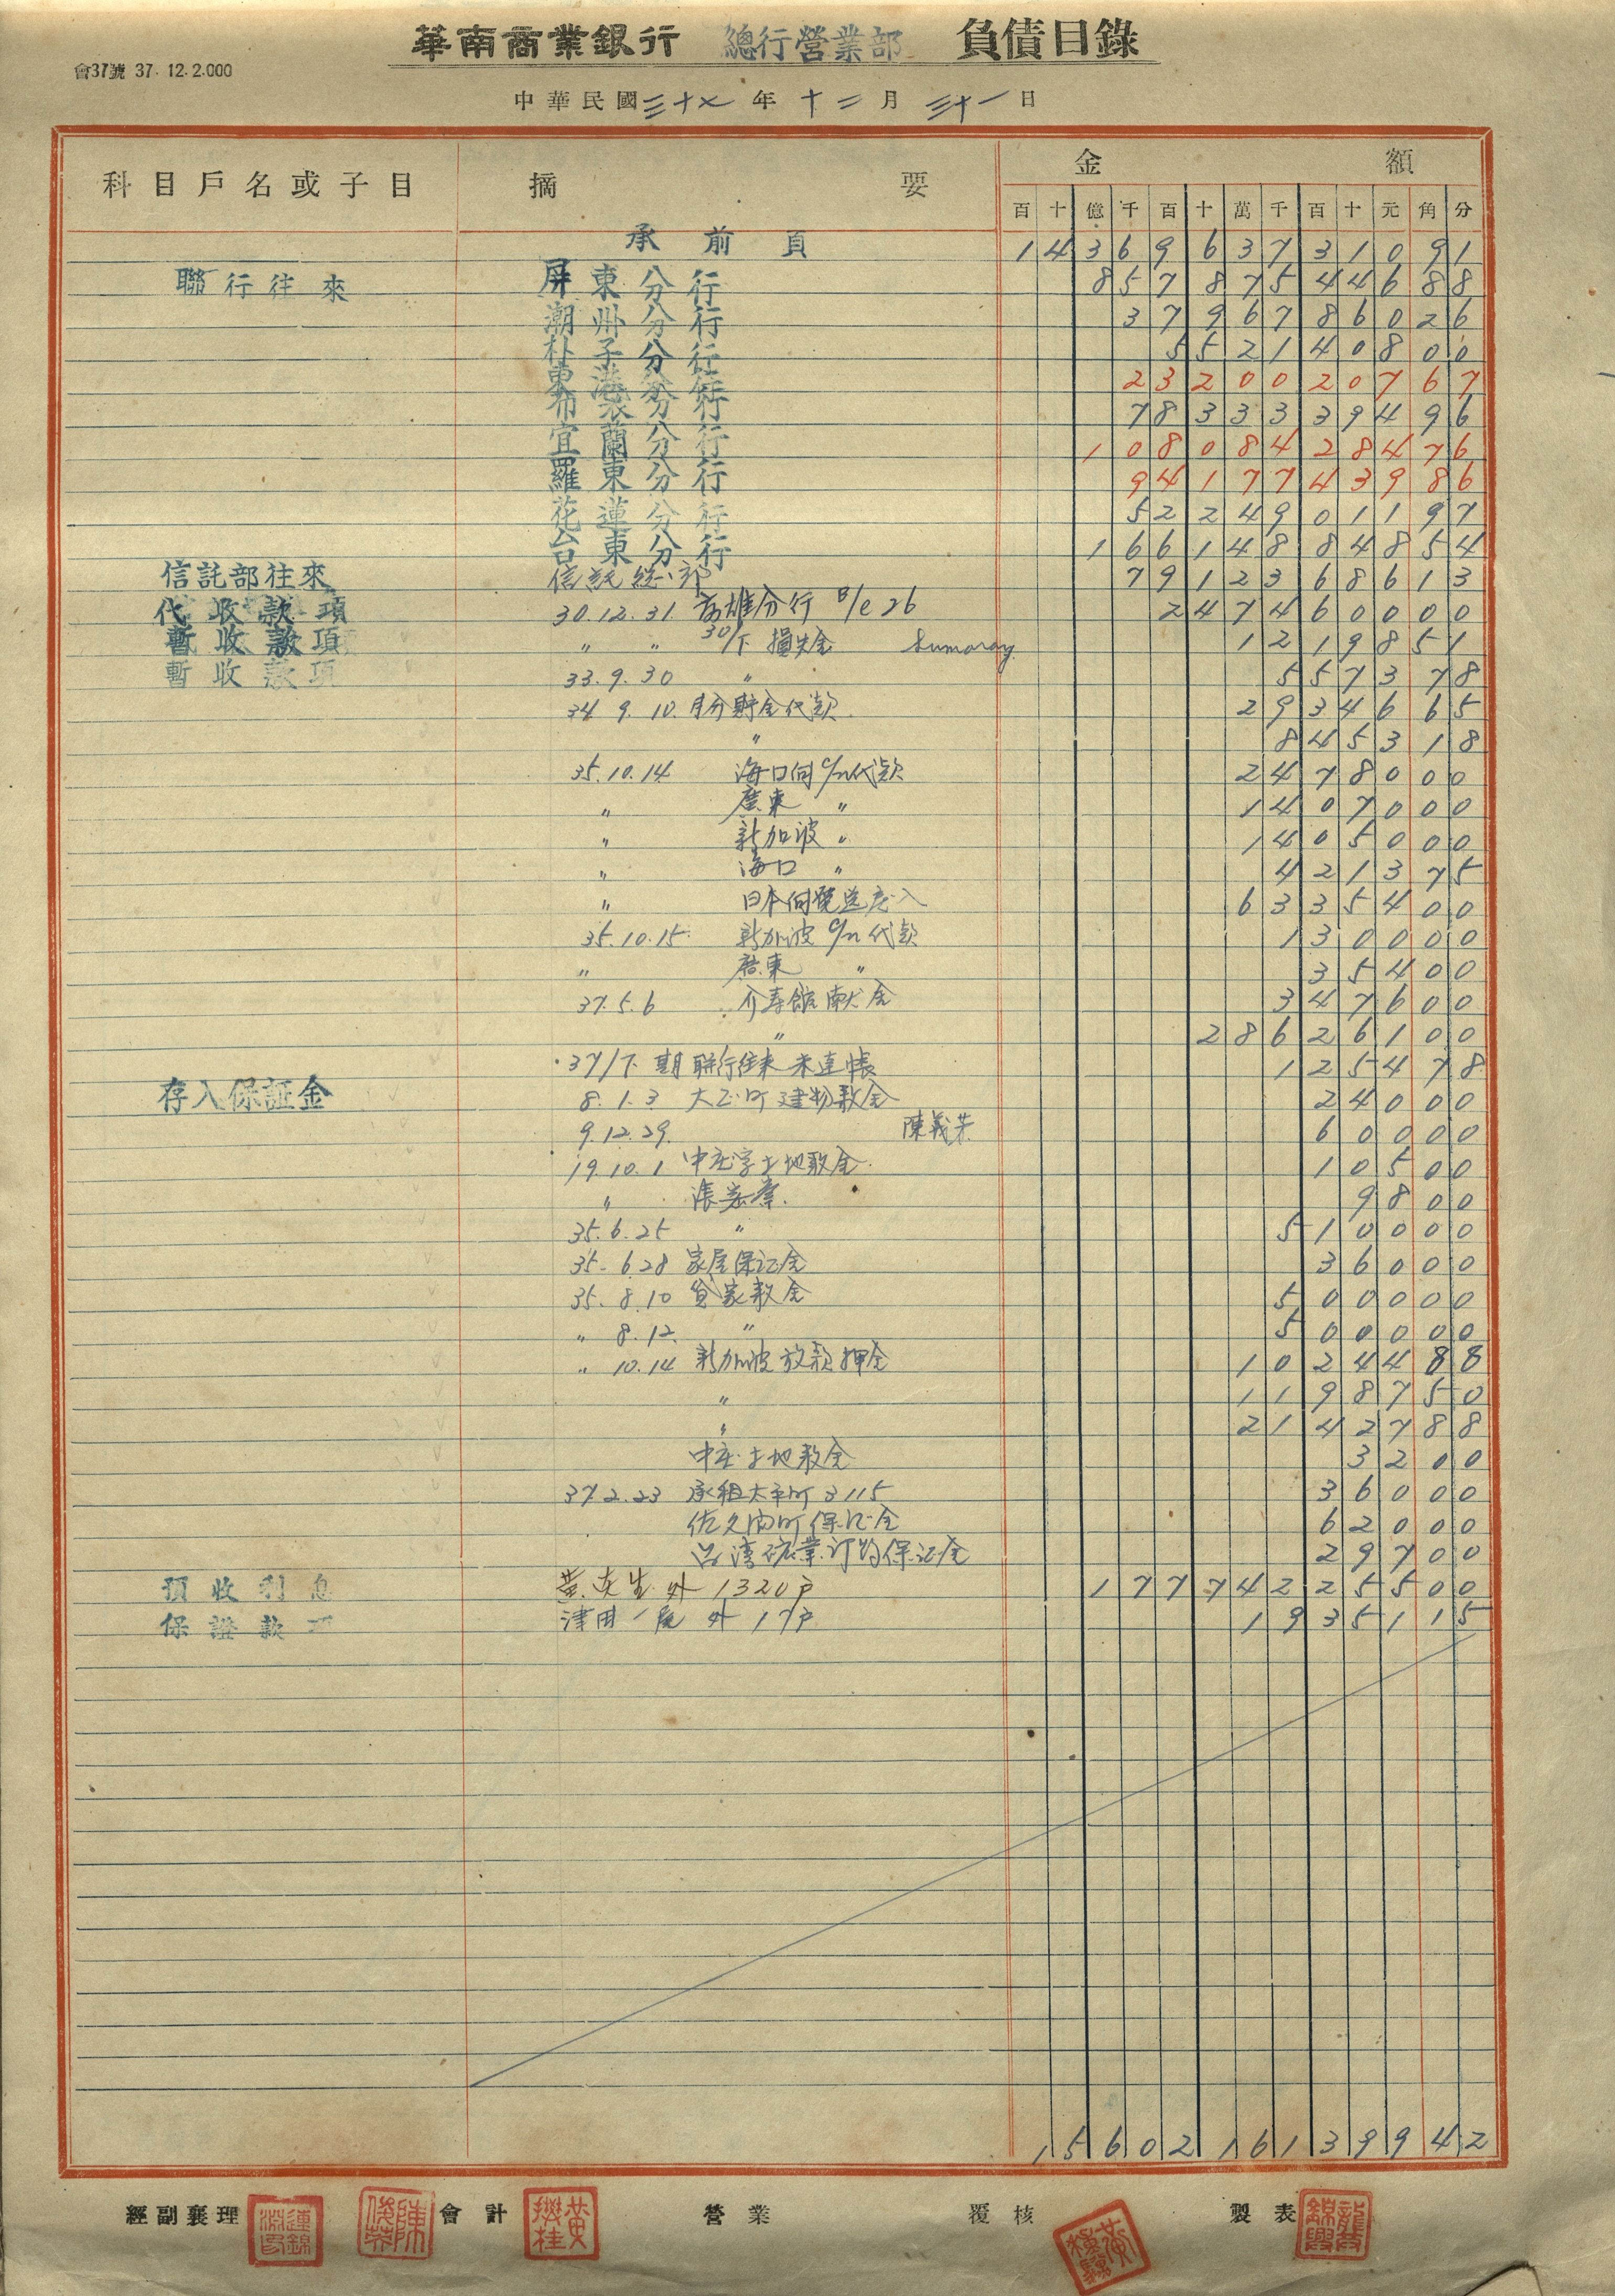 華南商業銀行 總行營業部 負債目錄
會37號 37. 12. 2.000
中華民國三十七年十二月三十一日
科目戶名或子目 摘要 金額
百 十 億 千 百 十 萬 千 百 十 元 角 分
承前頁 1 4 3 6 9 6 3 7 3 1 0 9 1
聯行往來 屏東分行 8 5 7 8 7 5 4 4 6 8 8
潮州分行 3 7 9 6 7 8 6 0 2 6
朴子分行 5 5 2 1 4 0 8 0 0
東港分行 2 3 2 0 0 2 0 7 6 7
布袋分行 7 8 3 3 3 3 9 4 9 6
宜蘭分行 1 0 8 0 8 4 2 8 4 7 6
羅東分行 9 4 1 7 7 4 3 9 8 6
花蓮分行 5 2 2 4 9 0 1 1 9 7
台東分行 1 6 6 1 4 8 8 4 8 5 4
信託部往來 信託總部 7 9 1 2 3 6 8 6 1 3
代收款項 30.12.31. 高雄分行 B/c 26 2 4 7 4 6 0 0 0 0
暫收款項 " " 30/下 損失金 Sumaray 1 2 1 9 8 5 1
暫收款項 33.9.30 " 5 5 7 3 7 8
34 9. 10. 月分貯金代款 2 9 3 4 6 6 5
" 8 4 5 3 1 8
35.10.14 海口向 c/n代款 2 4 7 8 0 0 0
" 廣東 " 1 4 0 7 0 0 0
" 新加波 " 1 4 0 5 0 0 0
" 海口 " 4 2 1 3 7 5
" 日本向 6 3 3 5 4 0 0
35.10.15. 新加波 c/n 代款 1 3 0 0 0 0
" 廣東 " 3 5 4 0 0
37.5.6 介壽館献金 3 4 7 6 0 0
" 2 8 6 2 6 1 0 0
37/下. 期 聯行往來 未達帳 1 2 5 4 7 8
存入保証金 8. 1. 3 大正町建物敷金 2 4 0 0 0
9.12.29. 陳義 6 0 0 0 0
19.10.1 中庄字土地敷金. 1 0 5 0 0
" 張 9 8 0 0
35.6.25 " 5 1 0 0 0 0
35. 6.28 家屋保証金 3 6 0 0 0
35. 8.10 貸家敷金 5 0 0 0 0 0
" 8.12. " 5 0 0 0 0 0
" 10.14 新加波放款押金 1 0 2 4 4 8 8
" 1 1 9 8 7 5 0
" 2 1 4 2 7 8 8
中庄土地敷金 3 2 0 0
37 2.23 承租太平町 3 115 3 6 0 0 0
佐久間町保証金 6 2 0 0 0
台湾礦業訂約保証金 2 9 7 0 0
預收利息 黃 生 外 1320戶 1 7 7 7 4 2 2 5 5 0 0
保證款項 津田 外 17戶 1 9 3 5 1 1 5
1 5 6 0 2 1 6 1 3 9 9 4 2
經副襄理 會計 營業 覆核 製表